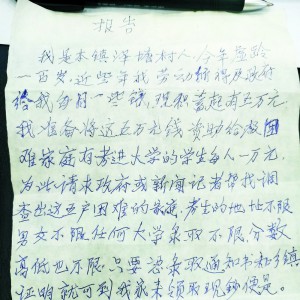 报告
我是本镇洋塘村人,今年虚龄
一百岁,近些年我劳动所得及政府
给我每月一些钱,现积蓄起有五万元,
我准备将这五万元钱资助给极困
难家庭有考进大学的学生每人一万元,
为此请求政府或新闻记者帮我调
查出这五户困难的家庭,考生的地址不限
男女不限任何大学录取不限,分数
高低也不限,只要凭录取通知书和乡镇
证明就可到我家来领取现钞便是。